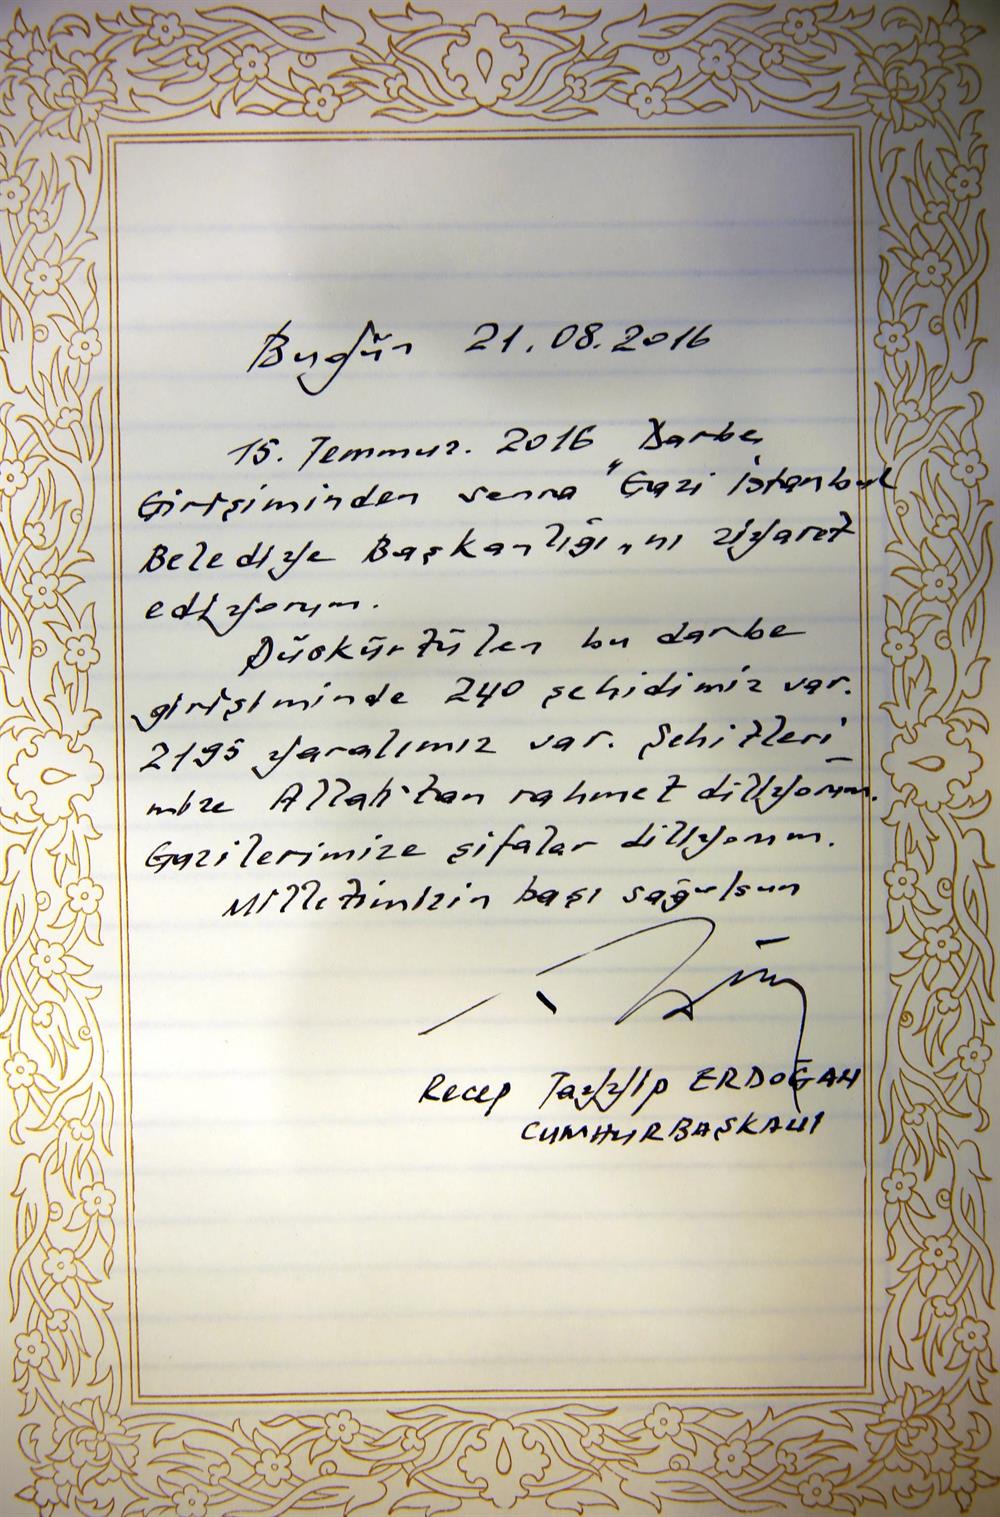 Bugün 21.08.2016
15. Temmuz. 2016 Darbe
Girişiminden sonra "Gazi İstanbul
Belediye Başkanlığı"nı ziyaret
ediyorum.
Püskürtülen bu darbe
girişiminde 240 şehidimiz var.
2195 yaralımız var. Şehitleri
mize Allah'tan rahmet diliyorum.
Gazilerimize şifalar diliyorum.
Milletimizin başı sağolsun
Recep Tayyip ERDOĞAN
CUMHURBAŞKANI